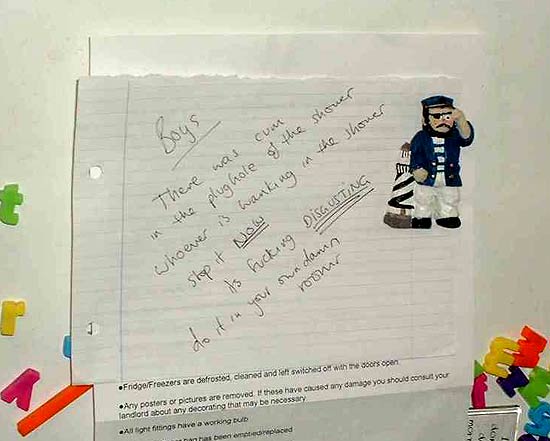 Boys
There was cum
in the plughole of the shower
whoever is wanking in the shower
stop it NOW
Its fucking DISGUSTING
do it in your own damn
rooms
•Fridge/Freezers are defrosted, cleaned and left switched off with the doors open.
•Any posters or pictures are removed. If these have caused any damage you should consult your
landlord about any decorating that may be necessary.
•All light fittings have a working bulb
has been emptied/replaced